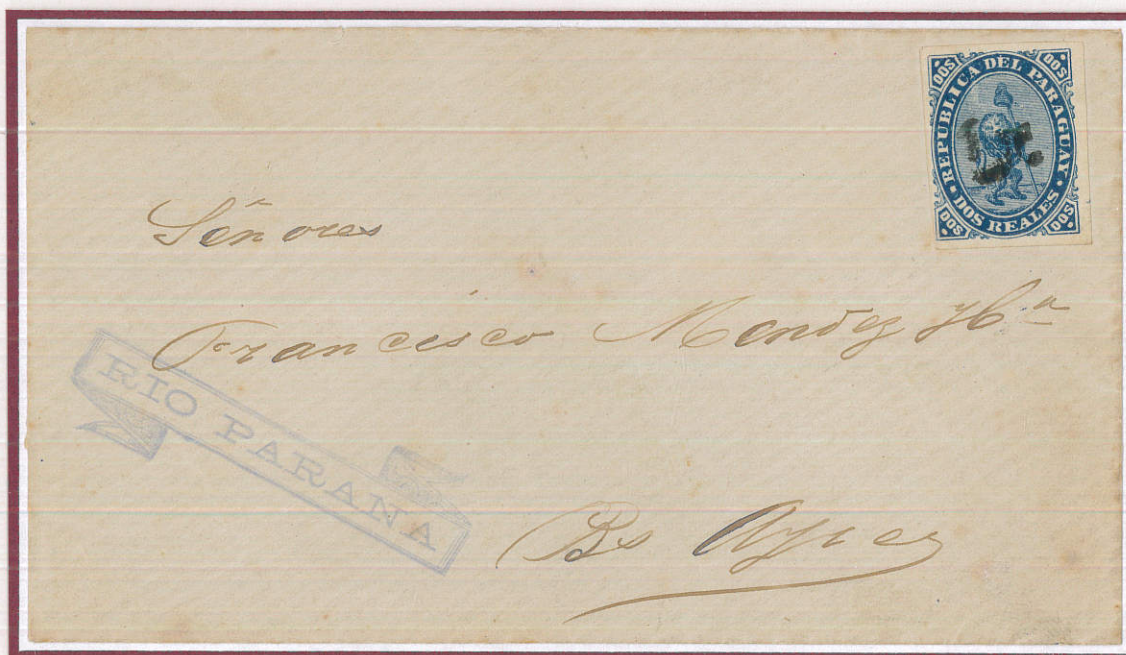 DOS DOS
REPUBLICA DEL PARAGUAY
DOS REALES
DOS DOS
Señores
Francisco Mendez y Cª
RIO PARANA
Bs Ayres